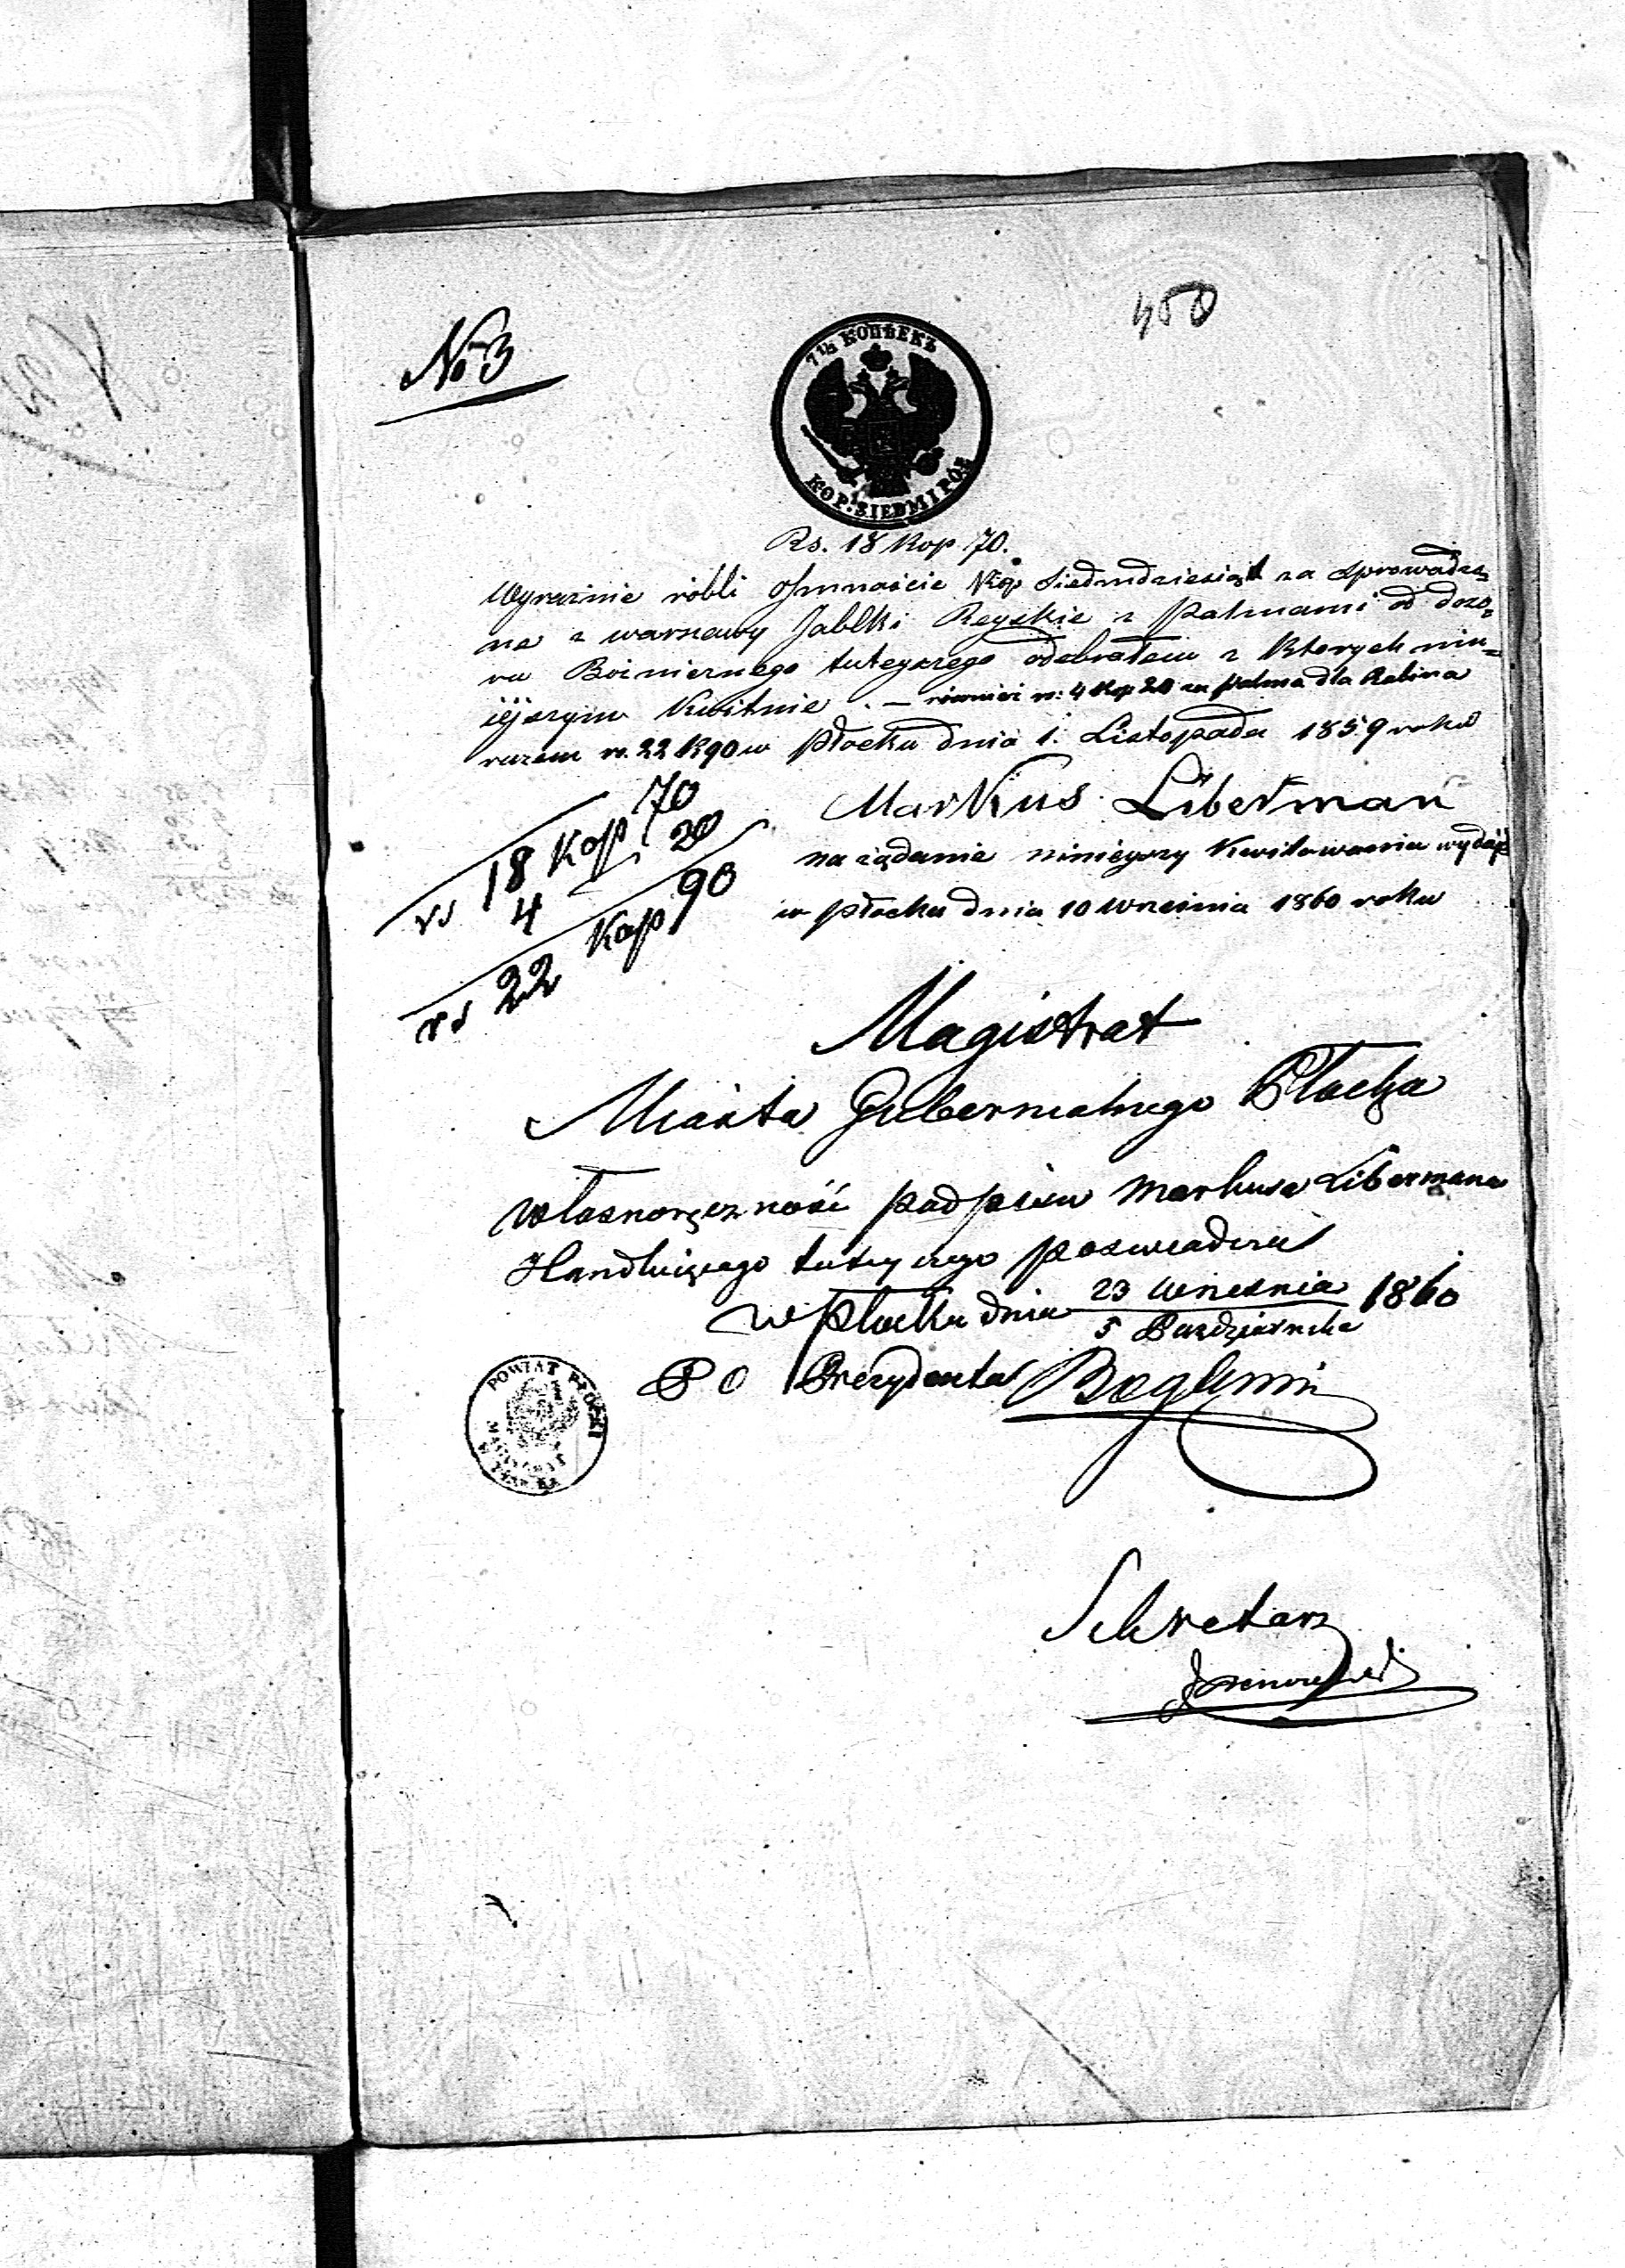 450
No 3
7½ КОПѢЕКЪ
KOP: SIEDMI PÓŁ
Rs. 18 Kop 70.
Wyraźnie róbli osmnaście Kop Siedmdziesiąt za sprowadzo=
ne z warszawy Jabłki Rayskie z palmami od dozo=
ru Bożnicznego tuteyszego odebrałem z których nin=
iejszym Kwituie. — również rs: 4 Kop 20 za palma dla Rabina
razem rs. 22 K 90 w Płocku dnia 1. Listopada 1859 roku
Markus Liberman
rs 18 Kop 70
4 20
rs 22 Kop 90
na żądanie ninieyszy Kwitowania wydaję
w Płocku dnia 10 Wrzesnia 1860 roku
Magistrat
Miasta Gubernialnego Płocka
Własnoręczność podpisu Markusa Libermana
Handluiącego tuteyszego poswiadcza
w Płocku dnia 23 Wrzesnia 1860
5 Pazdziernika
P O Prezydenta
POWIAT PŁOCKI
MAGISTRAT
Sekretarz